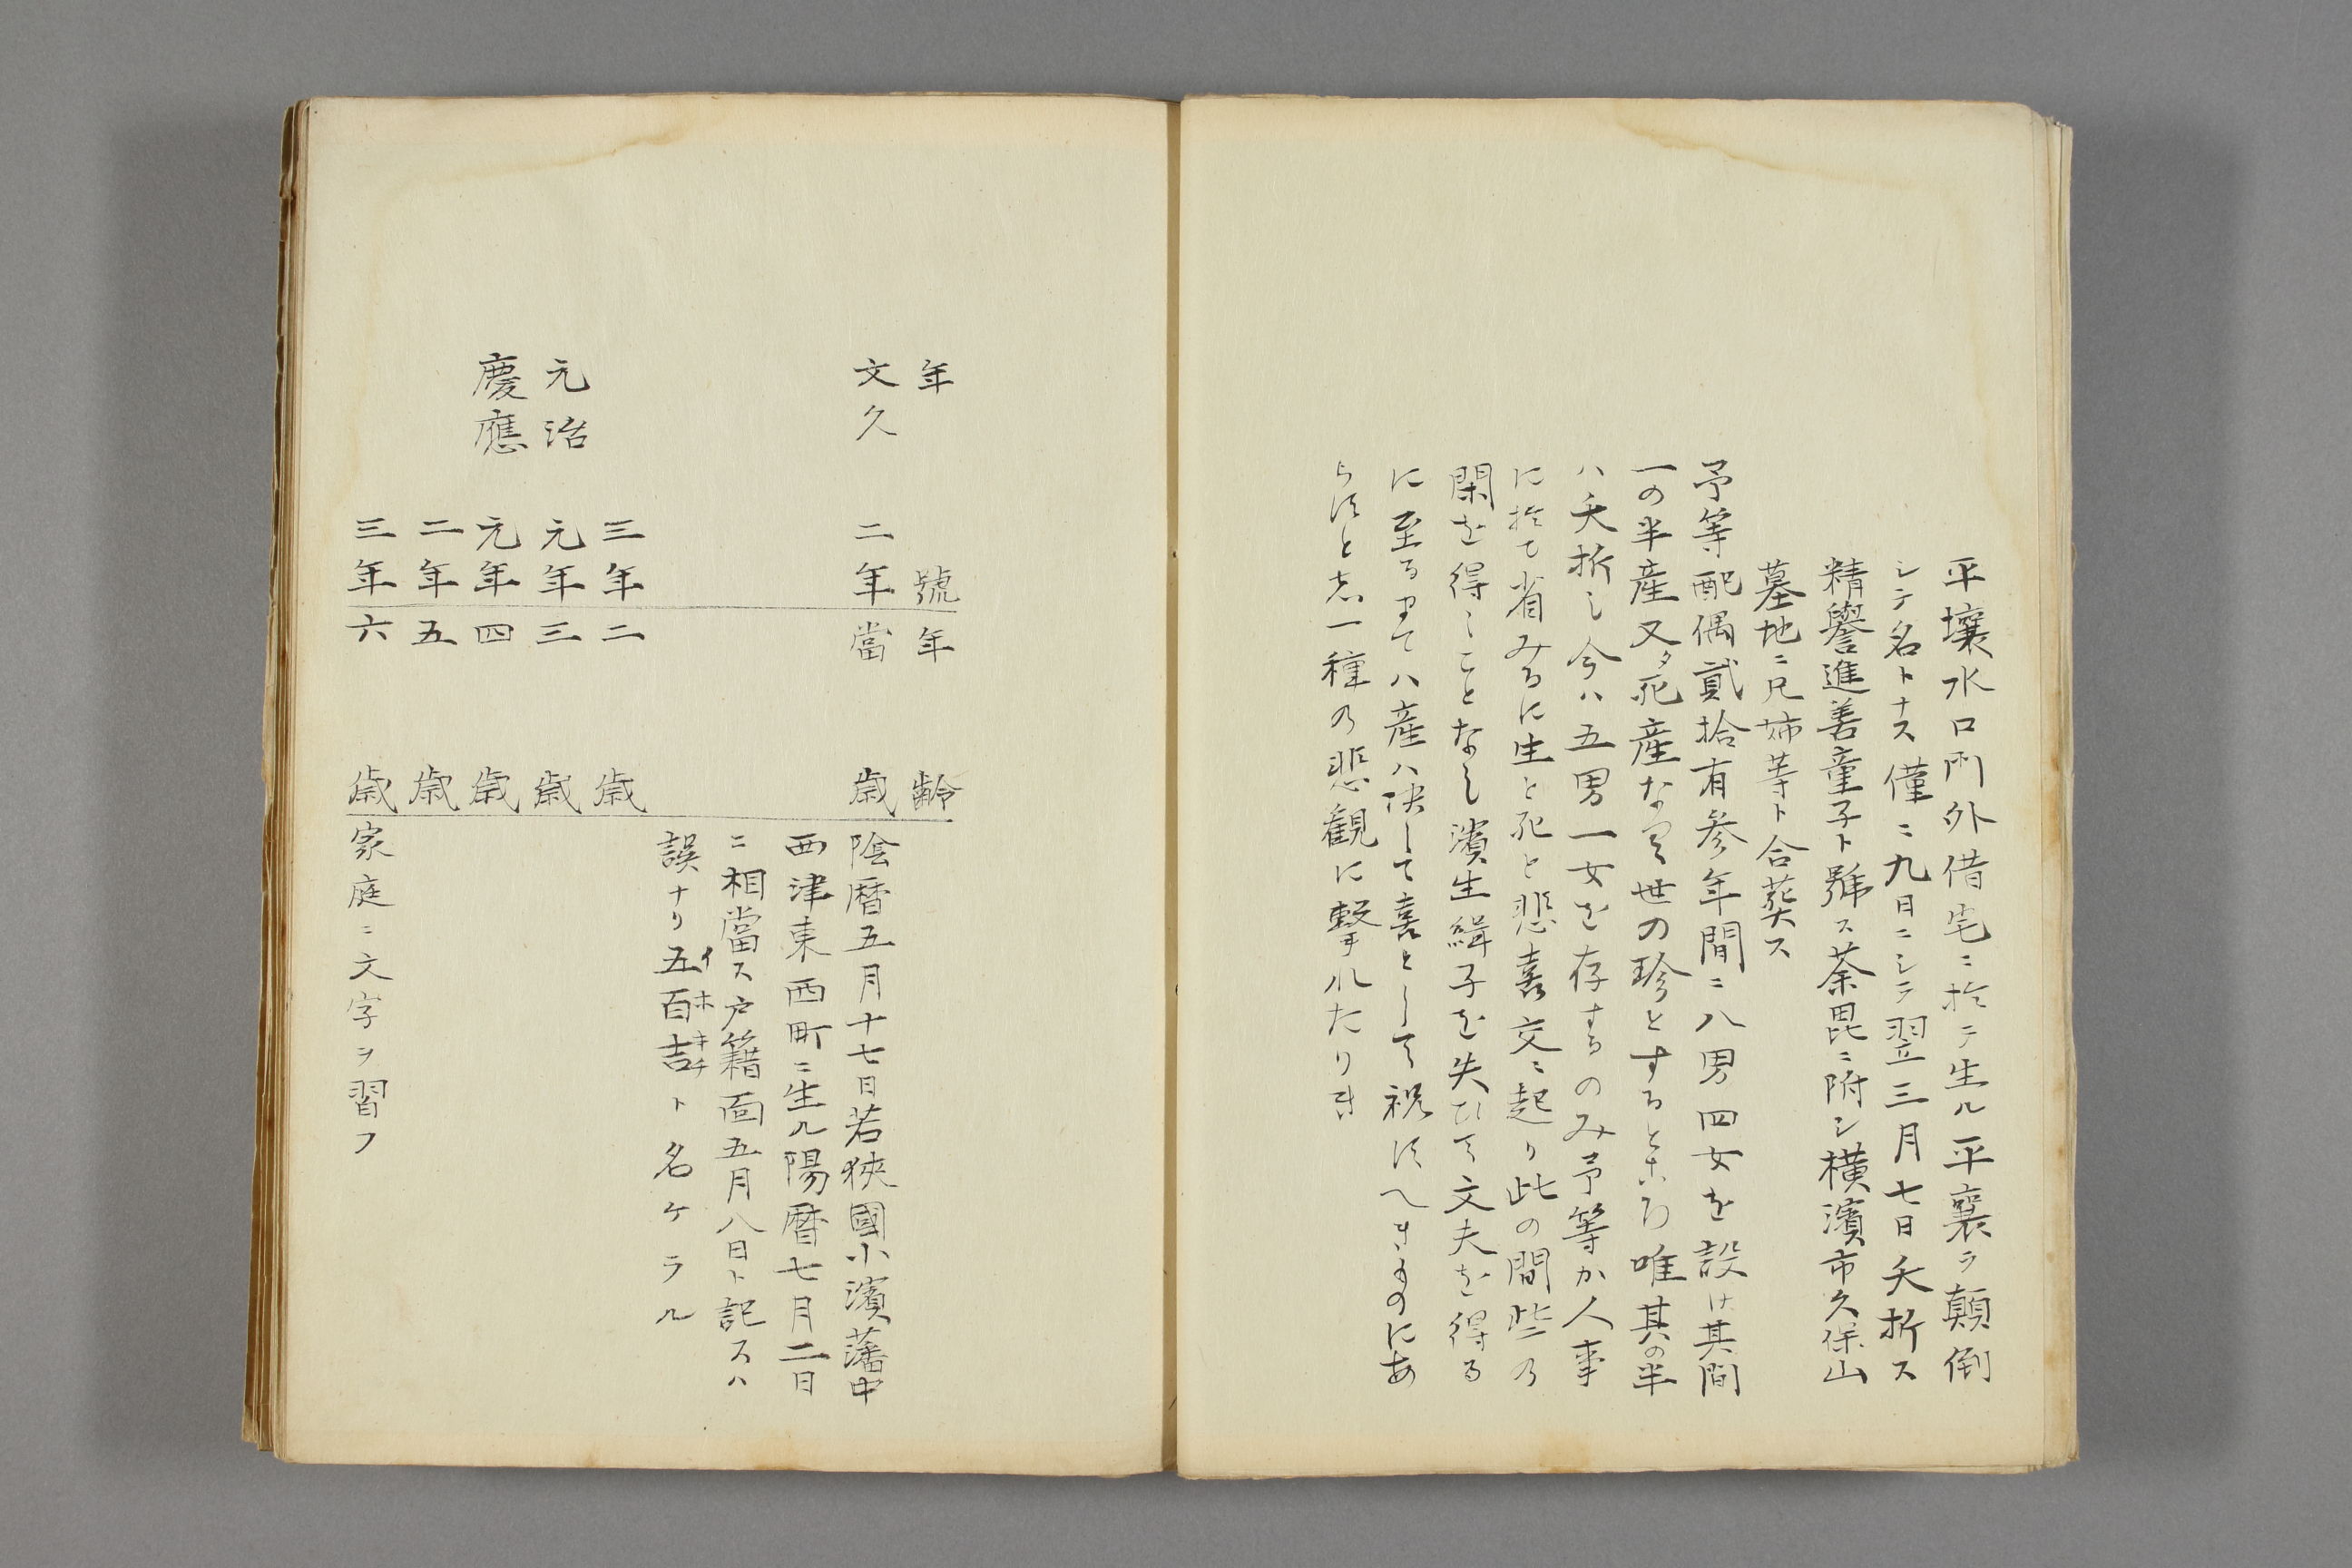 平壤水口門外借宅ニ於テ生ル平襄ヲ顛倒
シテ名トナス僅ニ九日ニシテ翌三月七日夭折ス
精譽進善童子ト號ス荼毘ニ附シ横濱市久保山
墓地ニ兄姉等ト合葬ス
予等配偶貳拾有參年間ニ八男四女を設け其間
一の半産又タ死産なく世の珍とするところ唯其の半
ハ夭折し今ハ五男一女を存するのみ予等か人事
に於て省みるに生と死と悲喜交〻起り此の間些の
閑を得ることなし濱生緝子を失ひて文夫を得る
に至りてハ産ハ決して喜として祝すへきものにあ
らすと志一種の悲観に撃れたりき
年號 年齡
文久 二年 當歳 陰曆五月十七日若狹國小濱藩中
西津東西町ニ生ル陽暦七月二日
ニ相當ス戸籍面五月八日ト記スハ
誤ナリ五百吉イホキチト名ケラル
三年 二歳
元治 元年 三歳
慶應 元年 四歳
二年 五歳
三年 六歳 家庭ニ文字ヲ習フ